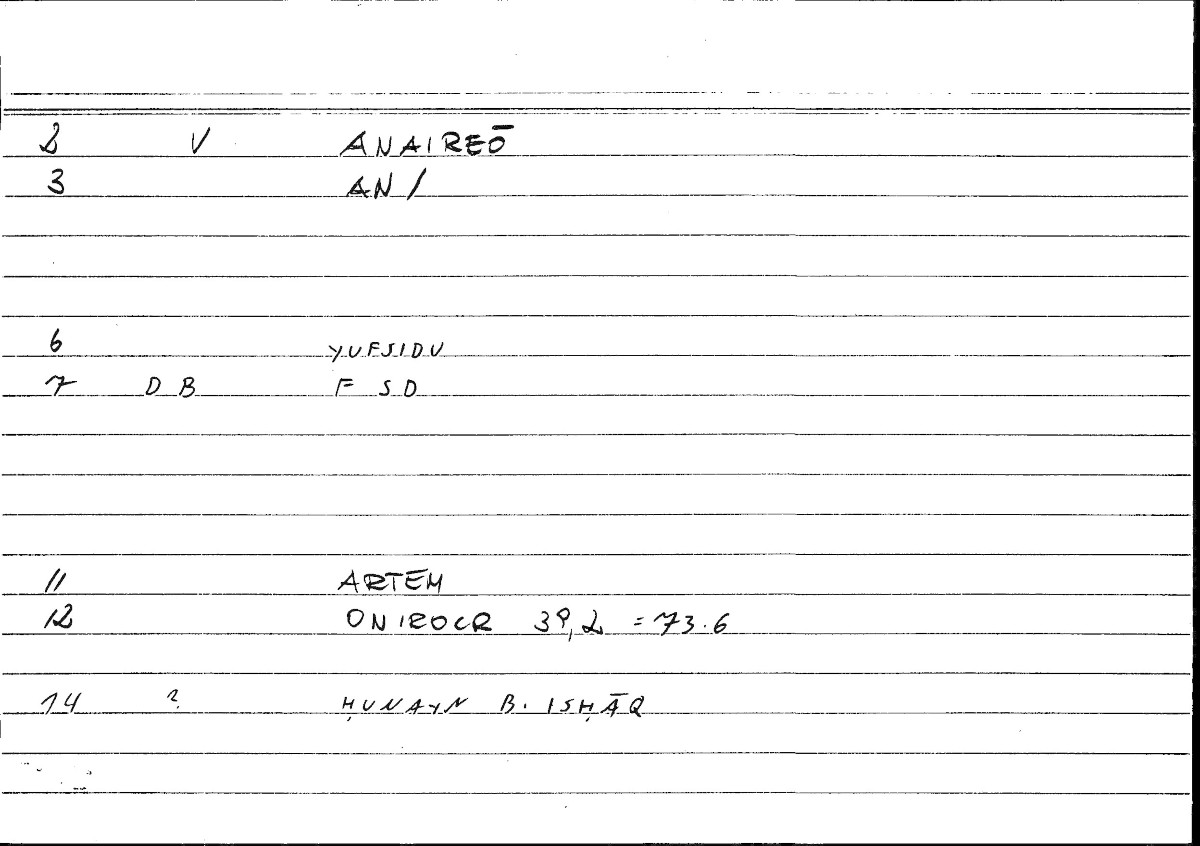 2 V ANAIREŌ
3 AN/
6 YUFSIDU
7 D B F S D
11 ARTEM
12 ONIROCR 39,2 = 73.6
14 ? ḤUNAYN B. ISḤĀQ